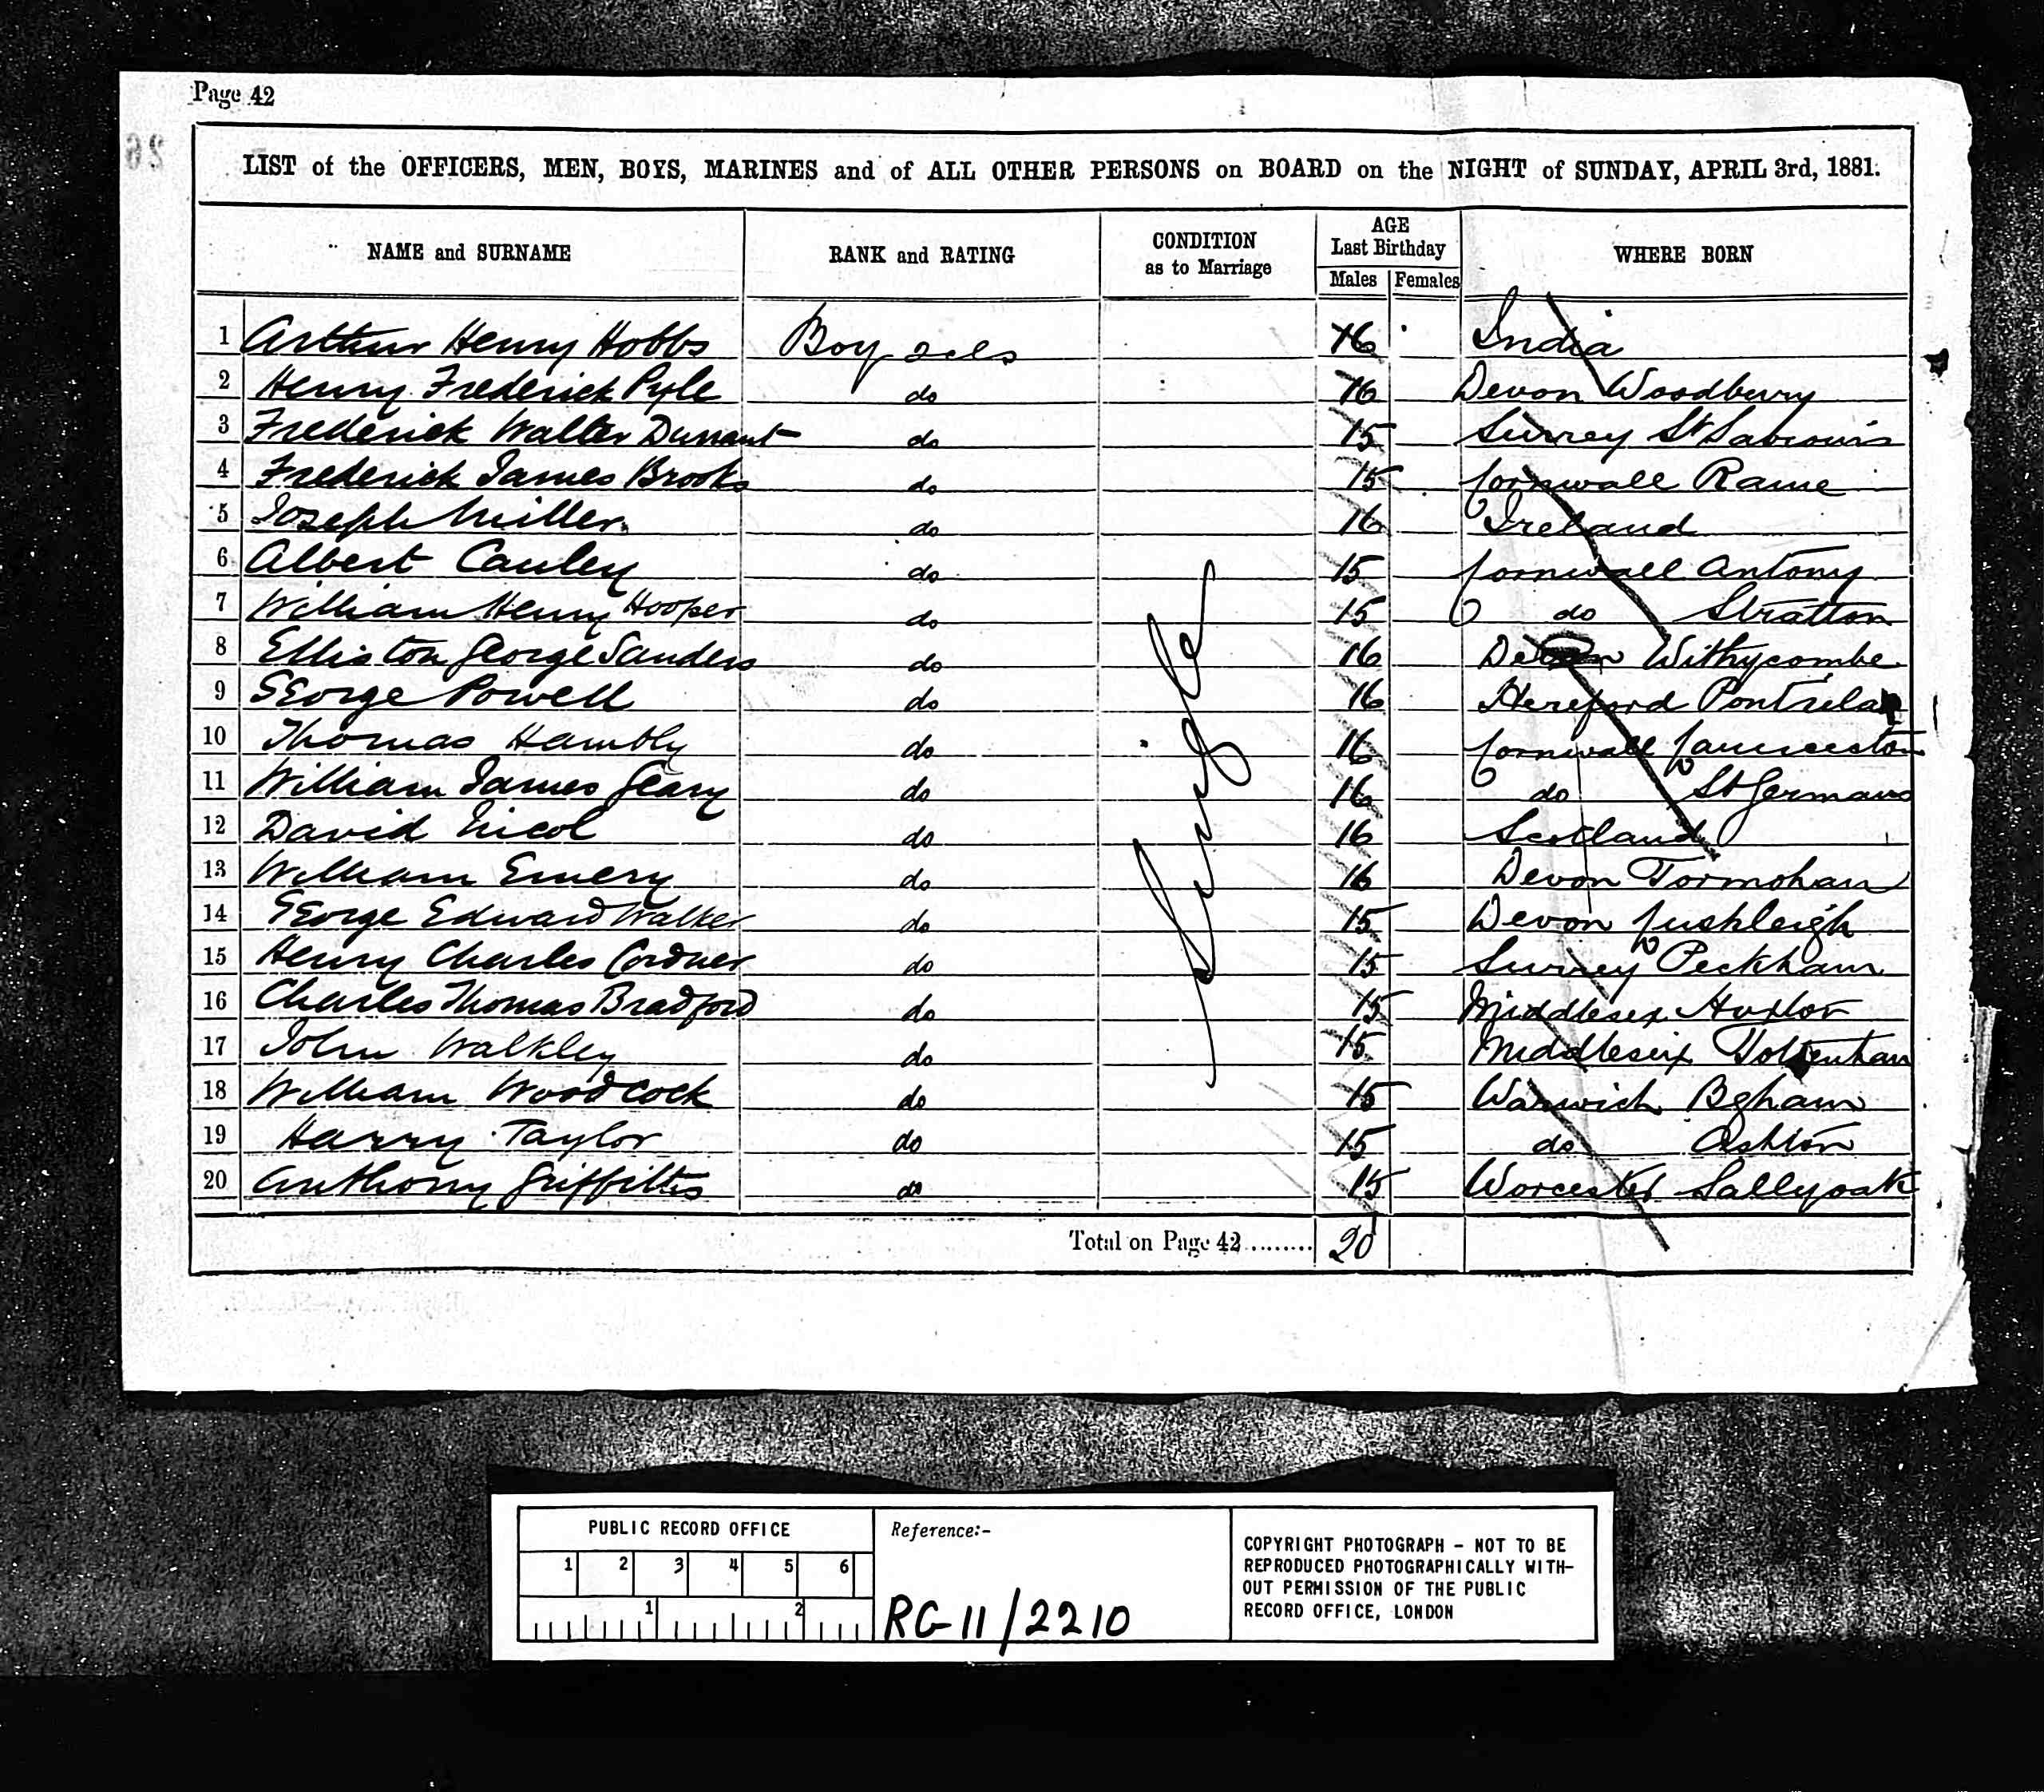 Page 42
26
LIST of the OFFICERS, MEN, BOYS, MARINES and of ALL OTHER PERSONS on BOARD on the NIGHT of SUNDAY, APRIL 3rd, 1881.
NAME and SURNAME RANK and RATING CONDITION as to Marriage AGE Last Birthday Males Females WHERE BORN
1 Arthur Henry Hobbs Boy 2cls 16 India
2 Henry Frederick Pyle do 16 Devon Woodbury
3 Frederick Walter Durrant do 15 Surrey St Saviours
4 Frederick James Brooks do 15 Cornwall Rame
5 Joseph Miller do 16 Ireland
6 Albert Cauley do 15 Cornwall Antony
7 William Henry Hooper do 15 do Stratton
8 Elliston George Sanders do 16 Devon Withycombe
9 George Powell do 16 Hereford Pontrilas
10 Thomas Hambly do 16 Cornwall Launceston
11 William James Geary do 16 do St Germans
12 David Nicol do 16 Scotland
13 William Emery do 16 Devon Tormohan
14 George Edward Walker do 15 Devon Lustleigh
15 Henry Charles Cordner do 15 Surrey Peckham
16 Charles Thomas Bradford do 15 Middlesex Hoxton
17 John Walkley do 15 Middlesex Tottenham
18 William Woodcock do 15 Warwick Bgham
19 Harry Taylor do 15 do Ashton
20 Anthony Griffiths do 15 Worcester Sallyoak
Single
Total on Page 42 ......... 20
PUBLIC RECORD OFFICE
1 2 3 4 5 6
1 2
Reference:-
RG 11/2210
COPYRIGHT PHOTOGRAPH - NOT TO BE
REPRODUCED PHOTOGRAPHICALLY WITH-
OUT PERMISSION OF THE PUBLIC
RECORD OFFICE, LONDON